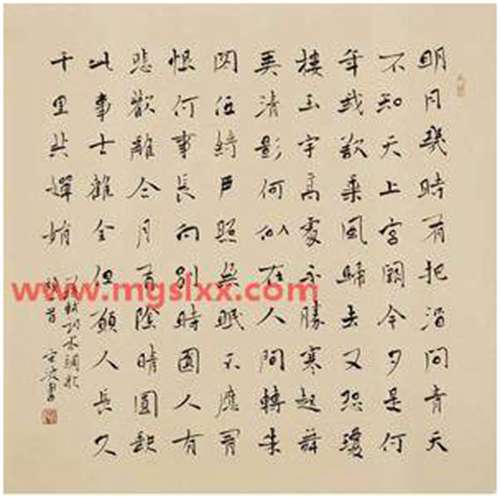 明月幾時有把酒問青天
不知天上宮闕今夕是何
年我欲乘風歸去又恐瓊
樓玉宇高處不勝寒起舞
弄清影何似在人間轉朱
閣低綺戶照無眠不應有
恨何事長向別時圓人有
悲歡離合月有陰晴圓缺
此事古難全但願人長久
千里共嬋娟
蘇軾詞水調歌
www.mgslxx.com